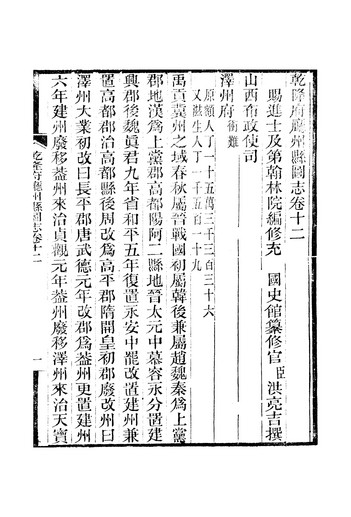 乾隆府廳州縣圖志卷十二
賜進士及第翰林院編修充 國史館纂修官臣洪亮吉撰
山西布政使司
澤州府衝難
原額人丁一十五萬三千三百三十六
又滋生人丁一千五百一十九
禹貢冀州之域春秋屬晉戰國初屬韓後兼屬趙魏秦爲上黨
郡地漢爲上黨郡高都陽阿二縣地晉太元中慕容永分置建
興郡後魏眞君九年省和平五年復置永安中罷改置建州兼
置高都郡治高都縣後周改爲高平郡隋開皇初郡廢改州曰
澤州大業初改曰長平郡唐武德元年改郡爲蓋州更置建州
六年建州廢移蓋州來治貞觀元年蓋州廢移澤州來治天寶
乾隆府廳州縣圖志卷十二
一